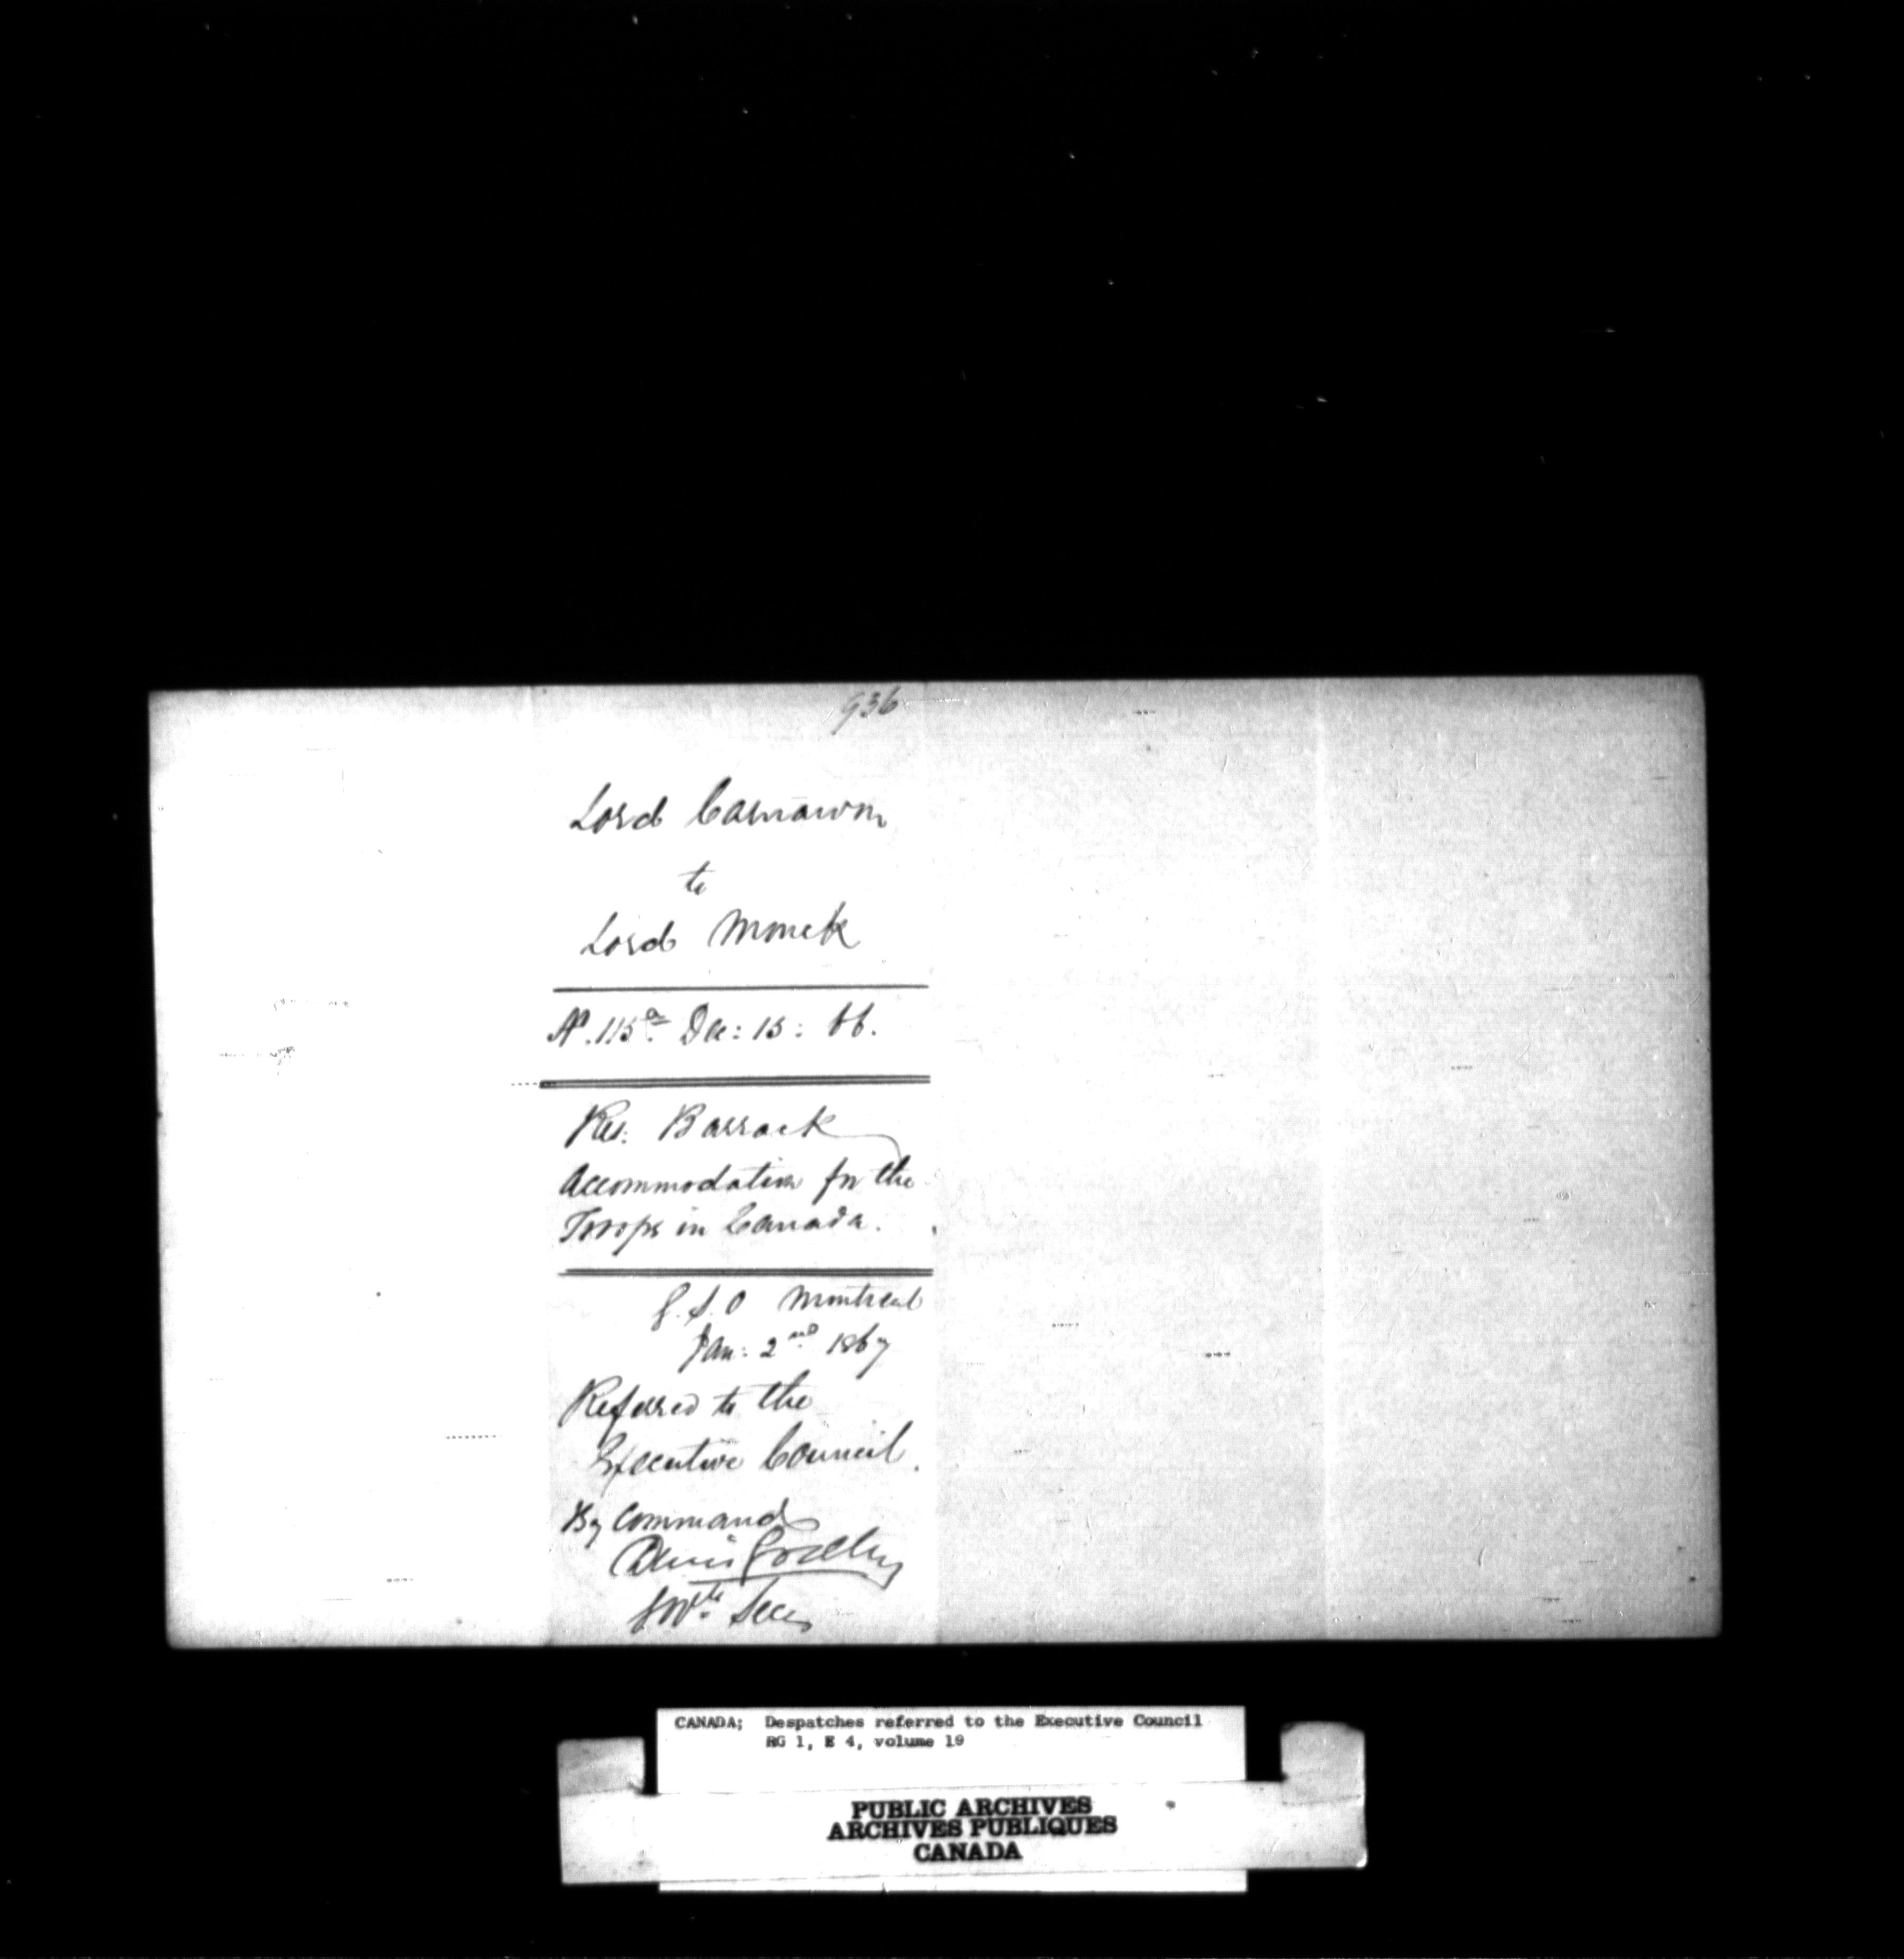 936
Lord Carnarvon
to
Lord Monck
No. 115a Dec: 15: 66.
Res: Barrack
Accommodation for the
Troops in Canada.
G. S. O Montreal
Jan: 2nd 1867
Referred to the
Executive Council.
By Command
Denis Godley
Govr. Secy
CANADA; Despatches referred to the Executive Council
RG 1, E 4, volume 19
PUBLIC ARCHIVES
ARCHIVES PUBLIQUES
CANADA